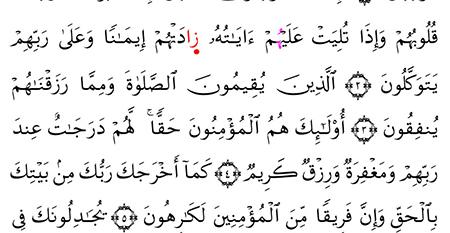 قُلُوبُهُمْ وَإِذَا تُلِيَتْ عَلَيْهِمْ ءَايَٰتُهُۥ زَادَتْهُمْ إِيمَٰنًا وَعَلَىٰ رَبِّهِمْ
يَتَوَكَّلُونَ ﴿٢﴾ ٱلَّذِينَ يُقِيمُونَ ٱلصَّلَوٰةَ وَمِمَّا رَزَقْنَٰهُمْ
يُنفِقُونَ ﴿٣﴾ أُو۟لَٰٓئِكَ هُمُ ٱلْمُؤْمِنُونَ حَقًّا ۚ لَّهُمْ دَرَجَٰتٌ عِندَ
رَبِّهِمْ وَمَغْفِرَةٌ وَرِزْقٌ كَرِيمٌ ﴿٤﴾ كَمَآ أَخْرَجَكَ رَبُّكَ مِنۢ بَيْتِكَ
بِٱلْحَقِّ وَإِنَّ فَرِيقًا مِّنَ ٱلْمُؤْمِنِينَ لَكَٰرِهُونَ ﴿٥﴾ يُجَٰدِلُونَكَ فِى